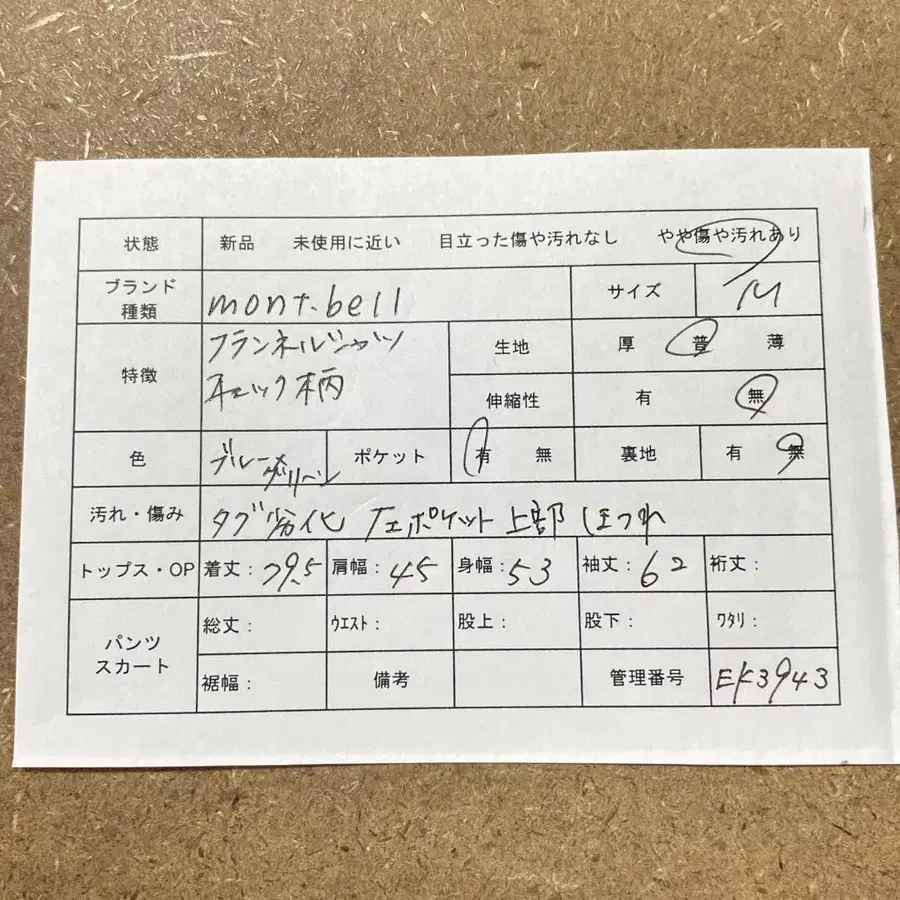 状態 新品 未使用に近い 目立った傷や汚れなし やや傷や汚れあり
ブランド 種類 mont-bell サイズ M
特徴 フランネルシャツ 生地 厚 普 薄
チェック柄 伸縮性 有 無
色 ブルー×グリーン ポケット 有 無 裏地 有 無
汚れ・傷み タグ劣化 左ポケット上部ほつれ
トップス・OP 着丈：79.5 肩幅：45 身幅：53 袖丈：62 裄丈：
パンツ スカート 総丈： ｳｴｽﾄ： 股上： 股下： ﾜﾀﾘ：
裾幅： 備考 管理番号 EK3943